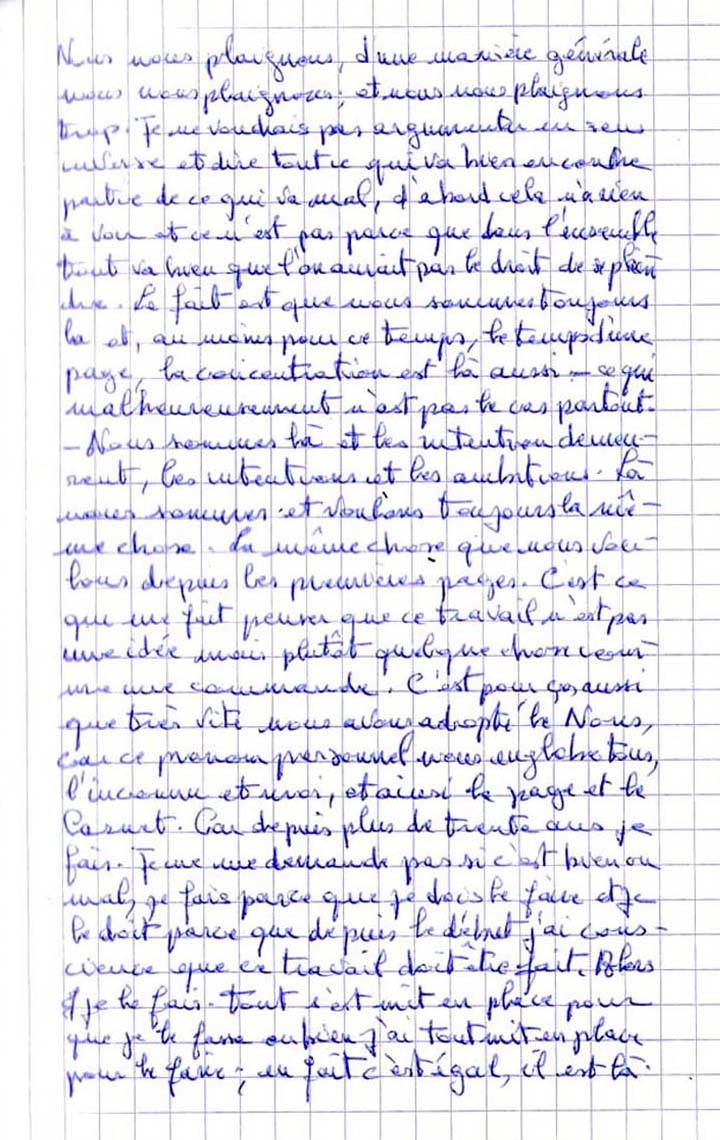 Nous nous plaignons, d'une manière générale
nous nous plaignons ; et nous nous plaignons
trop. Je ne voudrais pas argumenter en sens
inverse et dire tout ce qui va bien en contre
partie de ce qui va mal, d'abord cela n'a rien
à voir et ce n'est pas parce que dans l'ensemble
tout va bien que l'on aurait pas le droit de se plain
dre. Le fait est que nous sommes toujours
là et, au moins pour ce temps, le temps d'une
page, la concentration est là aussi – ce qui
malheureusement n'est pas le cas partout.
– Nous sommes là et les intention demeu-
rent, les intentions et les ambitions. Là
nous sommes et voulons toujours la mê-
me chose. La même chose que nous vou-
lons depuis les premières pages. C'est ce
que me fait penser que ce travail n'est pas
une idée mais plutôt quelque chose com-
me une commande. C'est pour ça aussi
que très vite nous avons adopté le Nous,
car ce pronom personnel nous englobe tous,
l'inconnu et moi, et ainsi la page et le
Carnet. Car depuis plus de trente ans je
fais. Je ne me demande pas si c'est bien ou
mal, je fais parce que je dois le faire et je
le doit parce que depuis le début j'ai cons-
cience que ce travail doit être fait. Alors
je le fais. Tout s'est mit en place pour
que je le fasse ou bien j'ai tout mit en place
pour le faire ; en fait c'est égal, il est là.